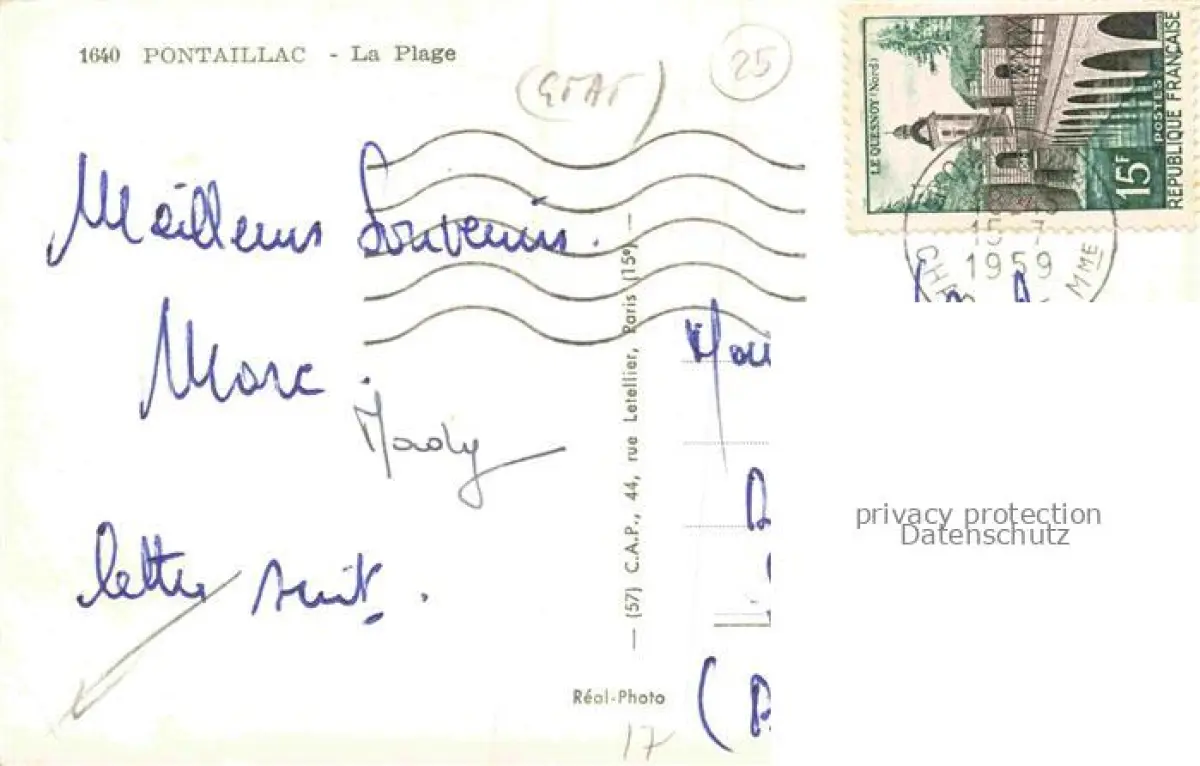 1640 PONTAILLAC - La Plage
25
LE QUESNOY (Nord)
15F
POSTES
REPUBLIQUE FRANÇAISE
1959
Meilleurs Souvenirs.
Marc.
Mady
lettre suit.
— (57) C.A.P., 44, rue Letellier, Paris (15e) —
Réal-Photo
17
privacy protection
Datenschutz